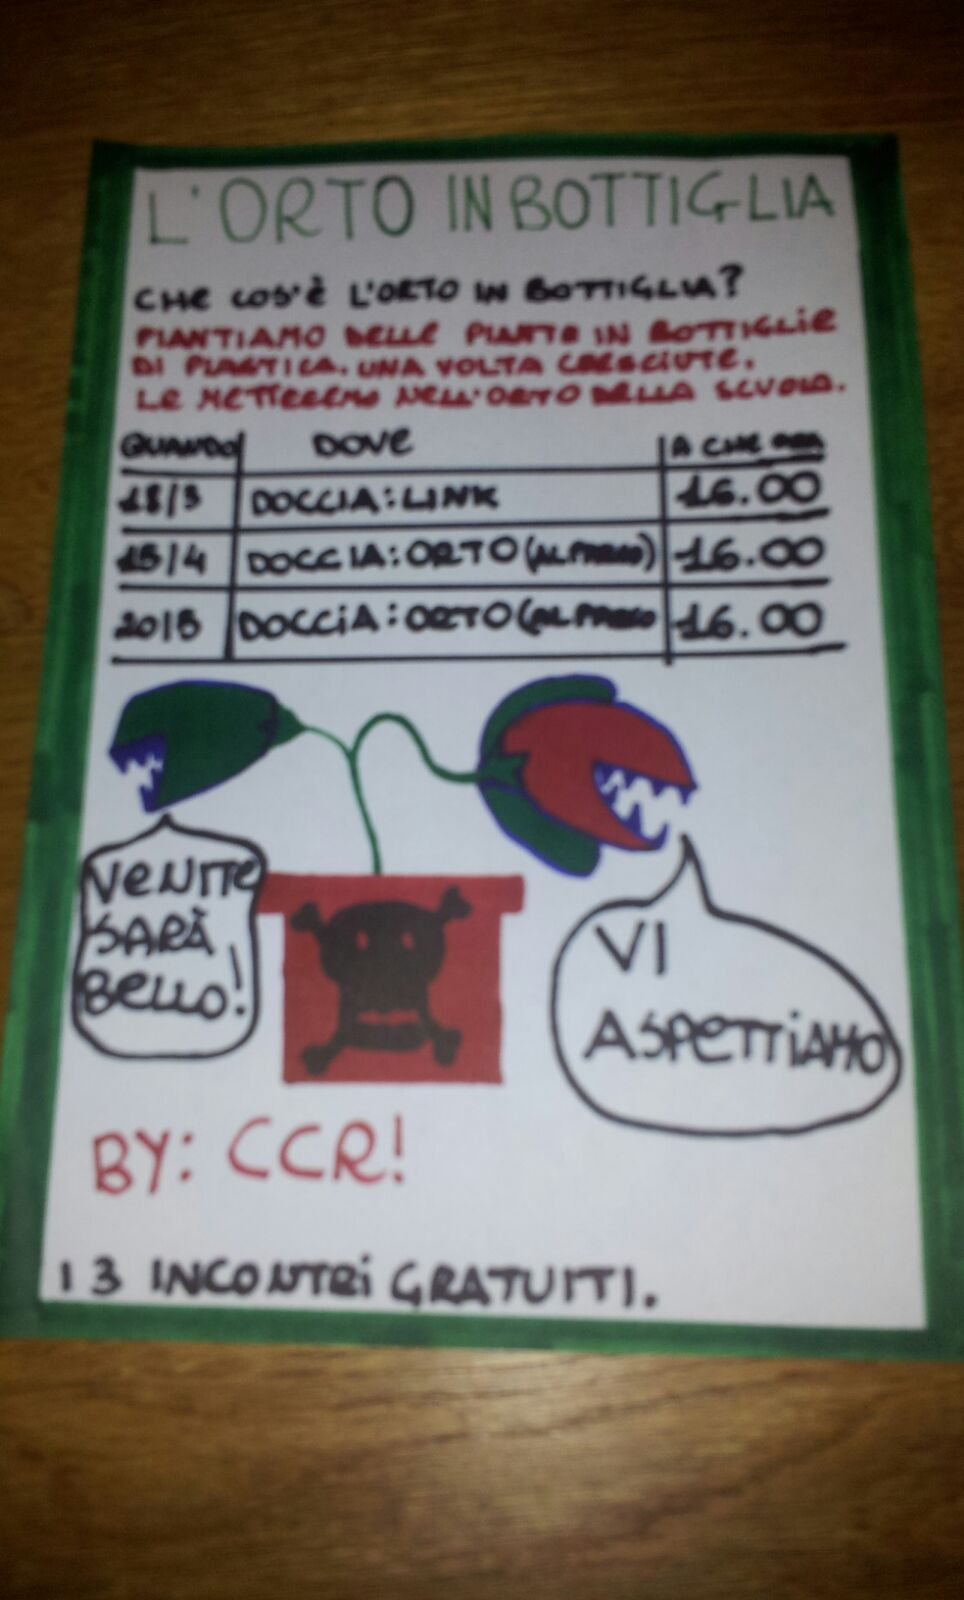 L'ORTO IN BOTTIGLIA
CHE COS'È L'ORTO IN BOTTIGLIA?
PIANTIAMO DELLE PIANTE IN BOTTIGLIE
DI PLASTICA. UNA VOLTA CRESCIUTE,
LE METTEREMO NELL'ORTO DELLA SCUOLA.
QUANDO DOVE A CHE ORA
18/3 DOCCIA: LINK 16.00
15/4 DOCCIA: ORTO (AL PARCO) 16.00
20/5 DOCCIA: ORTO (AL PARCO 16.00
VENITE
SARÀ
BELLO!
VI
ASPETTIAMO
BY: CCR!
I 3 INCONTRI GRATUITI.